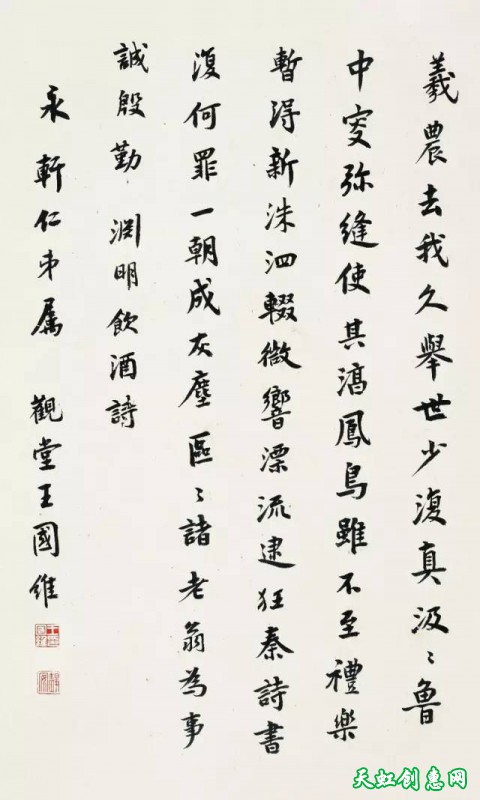 羲農去我久舉世少復真汲〻魯
中叟弥縫使其淳鳳鳥雖不至禮樂
暫得新洙泗輟微響漂流逮狂秦詩書
復何罪一朝成灰塵區〻諸老翁為事
誠殷勤 淵明飲酒詩
永軒仁弟属 觀堂王國維
天虹创惠网